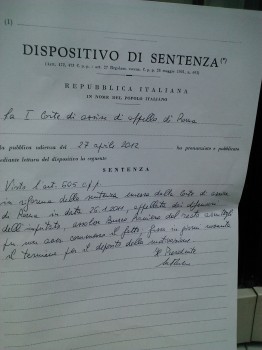 (1)
DISPOSITIVO DI SENTENZA (*)
REPUBBLICA ITALIANA
IN NOME DEL POPOLO ITALIANO
La I Corte di assise di appello di Roma
pubblica udienza del 27 aprile 2012 ha pronunciato e pubblicato
mediante lettura del dispositivo la seguente
SENTENZA
Visto l'art. 605 cpp.
in riforma della sentenza emessa dalla Corte di assise
di Roma in data 26.1.2011, appellata dai difensori
dell'imputato, assolve Busco Raniero dal reato
per non aver commesso il fatto, fissa in giorni novanta
il termine per il deposito della motivazione.
Il Presidente